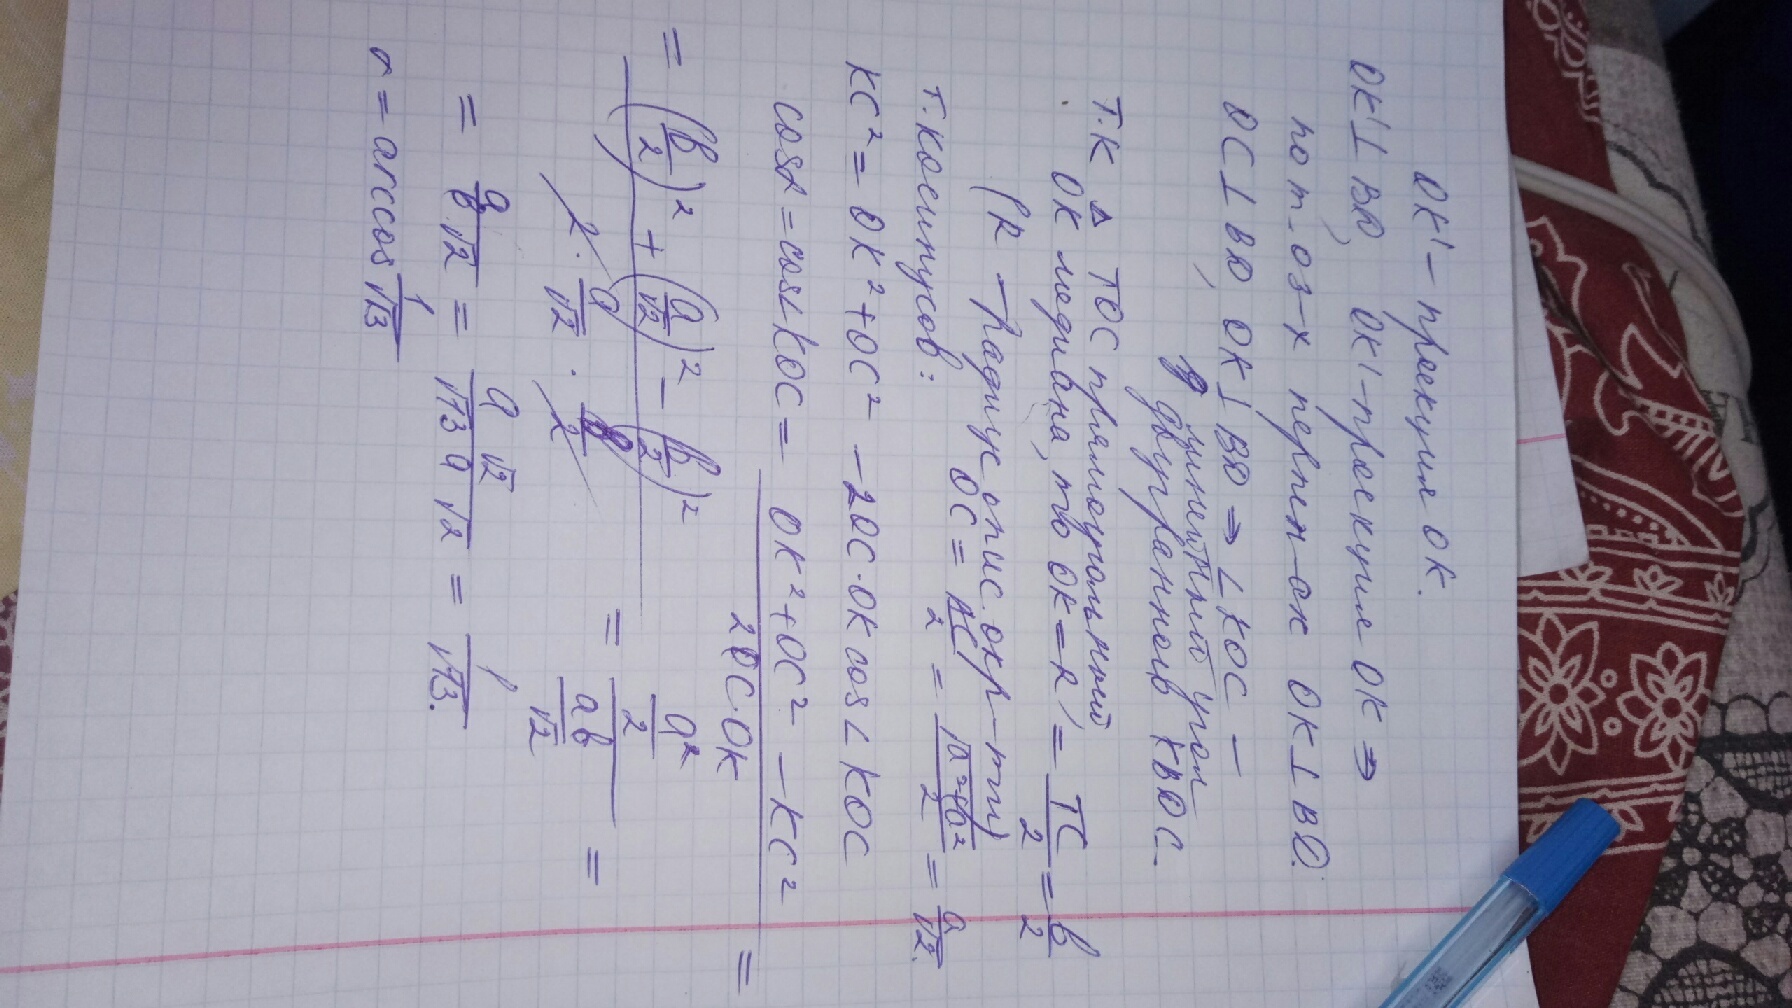 OK' – проекция OK.
OK' ⊥ BD, OK' – проекция OK ⇒
по т-оз-х перпен-ах OK ⊥ BD.
OC ⊥ BD, OK ⊥ BD ⇒ ∠KOC –
линейный угол
двугранного KBDC.
Т.к Δ TOC прямоугольный
OK медиана, то OK = R = TC/2 = b/2
(R – радиус опис. окр-ти)
OC = AC/2 = √(a²+a²)/2 = a/√2.
т. косинусов:
KC² = OK² + OC² – 2OC·OK cos∠KOC
cosα = cos∠KOC = (OK² + OC² – KC²)/(2OC·OK) =
= ((b/2)² + (a/√2)² – (b/2)²)/(2 · a/√2 · b/2) = (a²/2)/(ab/√2) =
= a/(b√2) = a√2/(√13 a √2) = 1/√13.
= arccos 1/√13